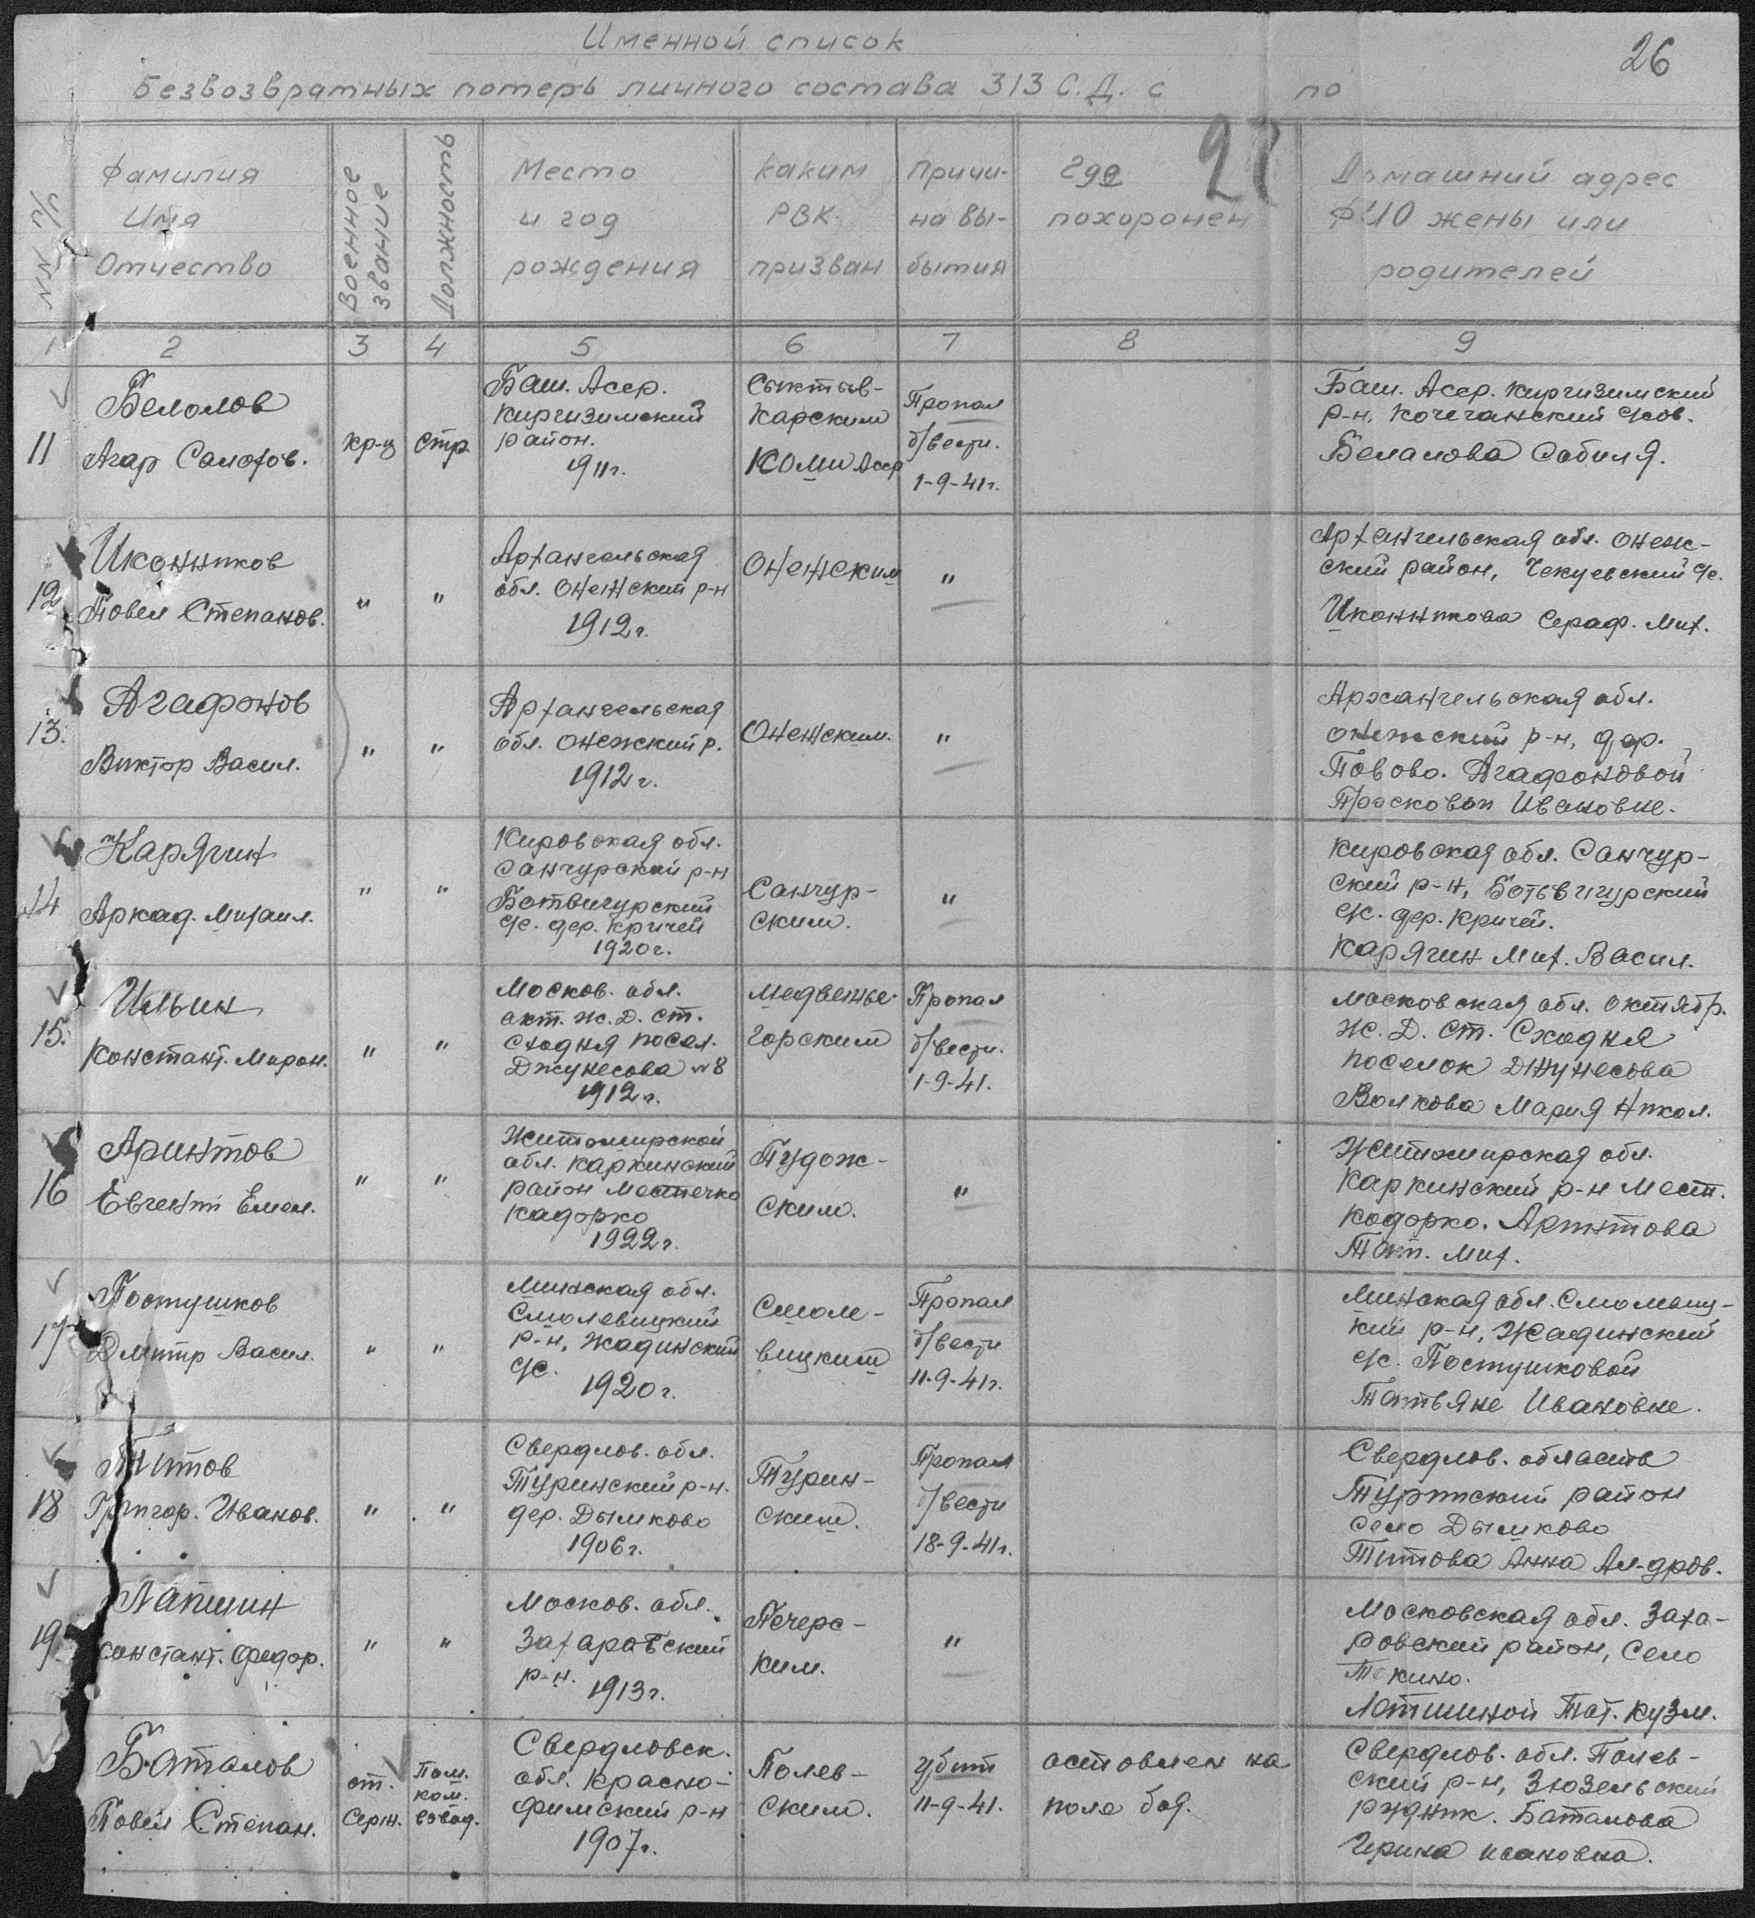 Именной список
26
Безвозвратных потерь личного состава 313 С.Д. с по
NN п/п
Фамилия
Имя
Отчество
Военное звание
Должность
Место
и год
рождения
каким
РВК
призван
Причи-
на вы-
бытия
Где
похоронен
Домашний адрес
ФИО жены или
родителей
1 2 3 4 5 6 7 8 9
11
Белолов
Агар Салофов.
кр-ц
стр.
Баш. Асср.
Киргизимский
район.
1911г.
Сыктыв-
карским
Коми Асср
Пропал
б/вести.
1-9-41г.
Баш. Асср. Киргизимский
р-н, Кочеганский с/сов.
Белалова Сабиля.
12
Иконников
Повел Степанов.
"
"
Архангельская
обл. Онежский р-н
1912г.
Онежским
"
Архангельская обл. Онеж-
ский район, Чекуевский с/с.
Иконникова Сераф. Мих.
13.
Агафонов
Виктор Васил.
"
"
Архангельская
обл. Онежский р.
1912г.
Онежским.
"
Архангельская обл.
Онежский р-н, дер.
Повово. Агафоновой
Просковьи Ивановне.
14
Карягин
Аркад. Михаил.
"
"
Кировская обл.
Санчурский р-н
Ботвигурский
с/с. дер. Кричей
1920г.
Санчур-
ским.
"
Кировская обл. Санчур-
ский р-н, Ботьвигурский
с/с. дер. Кричей.
Карягин Мих. Васил.
15.
Ильин
Констант. Мирон.
"
"
Москов. обл.
окт. ж.д. ст.
Сходня посел.
Джунесова №8
1912г.
Медвежье-
горским
Пропал
б/вести.
1-9-41.
Московская обл. октябр.
ж.д. ст. Сходня
поселок Джунесова
Волкова Мария Никол.
16
Аринтов
Евгений Емел.
"
"
Житомирской
обл. Каркинский
район Местечко
Кадорко
1922г.
Пудож-
ским.
"
Житомирская обл.
Каркинский р-н Мест.
Кодорко. Аринтова
Тат. Мих.
17
Постушков
Дмитр Васил.
"
"
Минская обл.
Смолевицкий
р-н, Жадинский
с/с.
1920г.
Смоле-
вицким
Пропал
б/вести
11-9-41г.
Минская обл. Смолевиц-
кий р-н, Жадинский
с/с. Постушковой
Татьяне Ивановне.
18
Титов
Григор. Иванов.
"
"
Свердлов. обл.
Туринский р-н.
дер. Дымково
1906г.
Турин-
ским.
Пропал
б/вести
18-9-41г.
Свердлов. область
Туринский район
село Дымково
Титова Анна Ал-дров.
19
Лапшин
Констант. Федор.
"
"
Москов. обл.
Захаровский
р-н.
1913г.
Печерс-
ким.
"
Московская обл. Заха-
ровский район, село
Токино.
Латшиной Тат. Кузм.
Баталов
Повел Степан.
ст.
серж.
Пом.
ком.
взвод.
Свердловск.
обл. Красно-
фимский р-н
1907г.
Полев-
ским.
убит
11-9-41.
остовлен на
поле боя.
Свердлов. обл. Полев-
ский р-н, Зюзельский
рудник. Баталова
Ирина Ивановна.